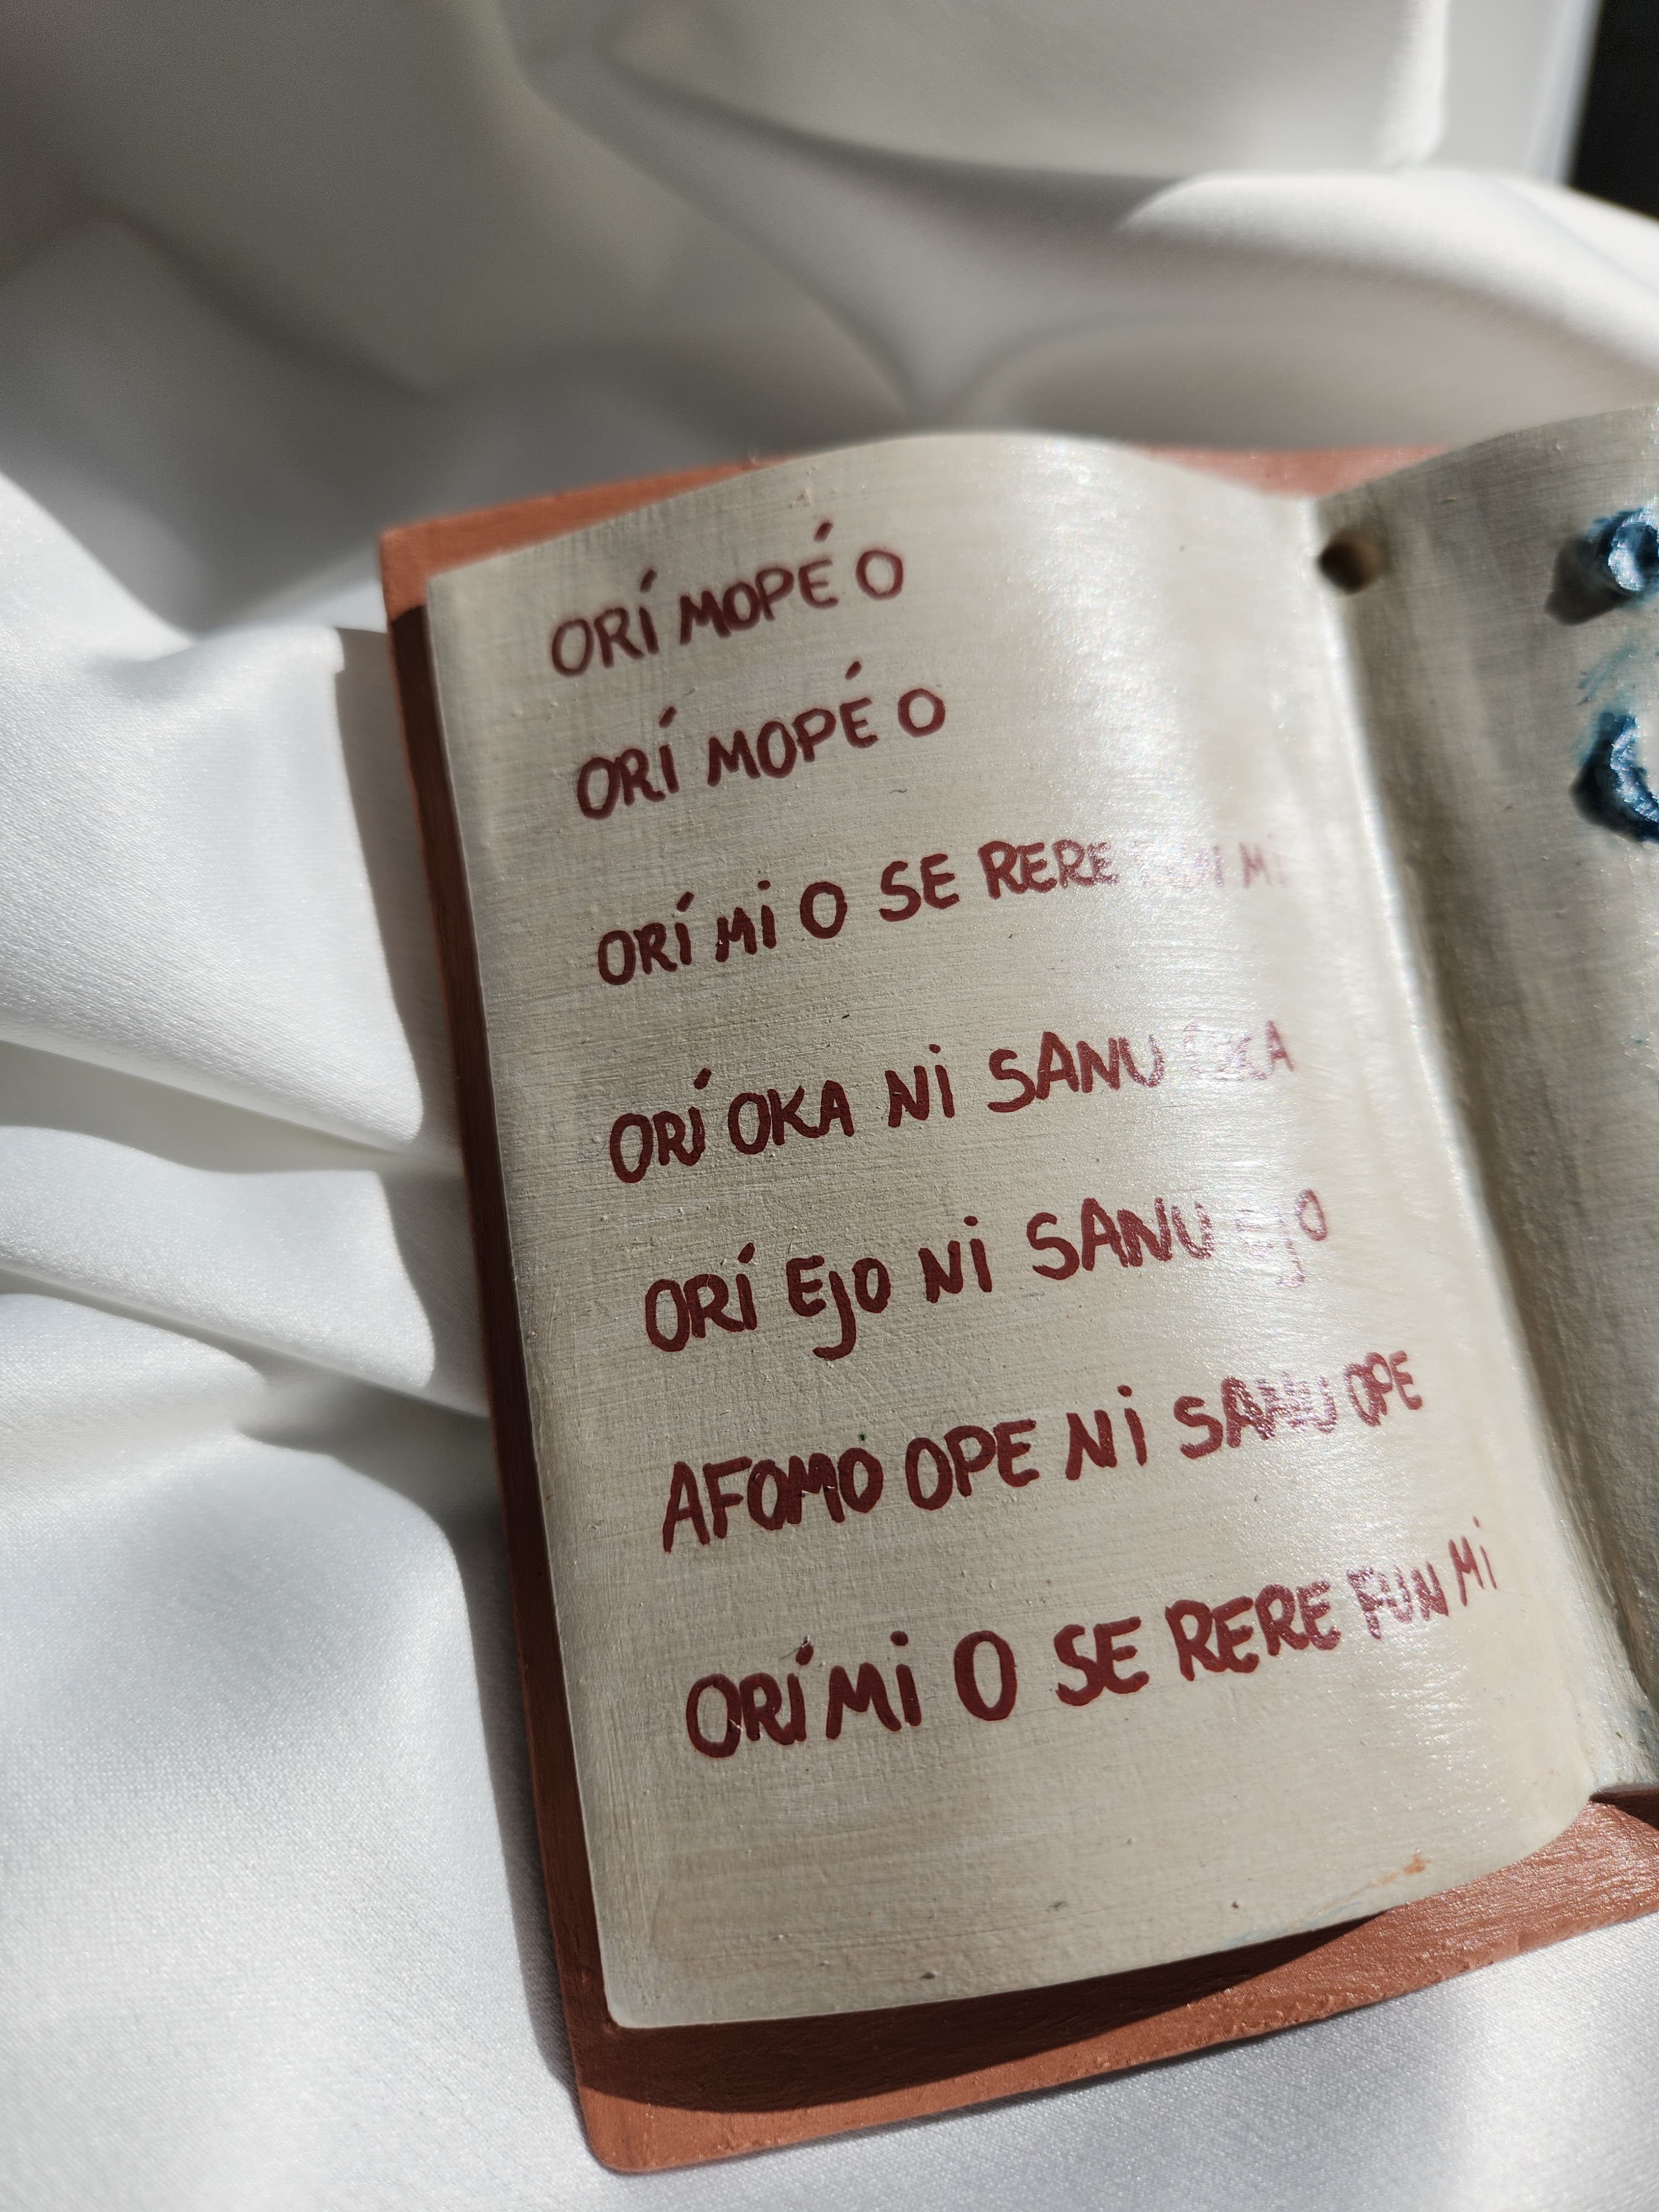 ORÍ MOPÉ O
ORÍ MOPÉ O
ORÍ Mi O SE RERE FUN Mi
ORÍ OKA Ni SANU OKA
ORÍ EjO Ni SANU EjO
AFOMO OPE Ni SANU OPE
ORÍ Mi O SE RERE FUN Mi